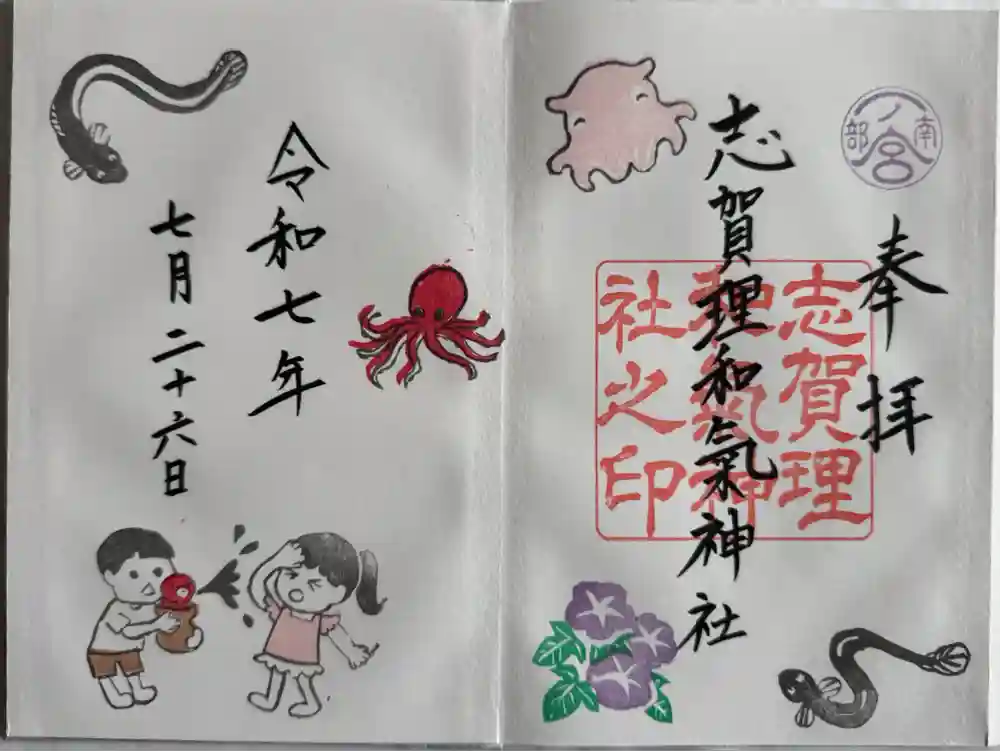 奉拝
南部一ノ宮
志賀理和氣神社
志賀理和氣神社之印
令和七年
七月二十六日